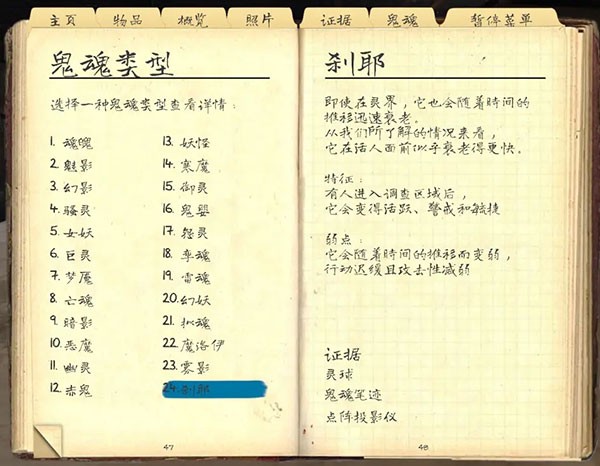 主页 物品 概览 照片 证据 鬼魂 暂停菜单
鬼魂类型
选择一种鬼魂类型查看详情：
1. 魂魄
2. 魅影
3. 幻影
4. 骚灵
5. 女妖
6. 巨灵
7. 梦魇
8. 亡魂
9. 暗影
10. 恶魔
11. 幽灵
12. 赤鬼
13. 妖怪
14. 寒魔
15. 御灵
16. 鬼婴
17. 怨灵
18. 孪魂
19. 雷魂
20. 幻妖
21. 拟魂
22. 魔洛伊
23. 雾影
24. 刹耶
47
刹耶
即使在灵界，它也会随着时间的
推移迅速衰老。
从我们所了解的情况来看，
它在活人面前似乎衰老得更快。
特征：
有人进入调查区域后，
它会变得活跃、警戒和敏捷
弱点：
它会随着时间的推移而变弱，
行动迟缓且攻击性减弱
证据
灵球
鬼魂笔迹
点阵投影仪
48